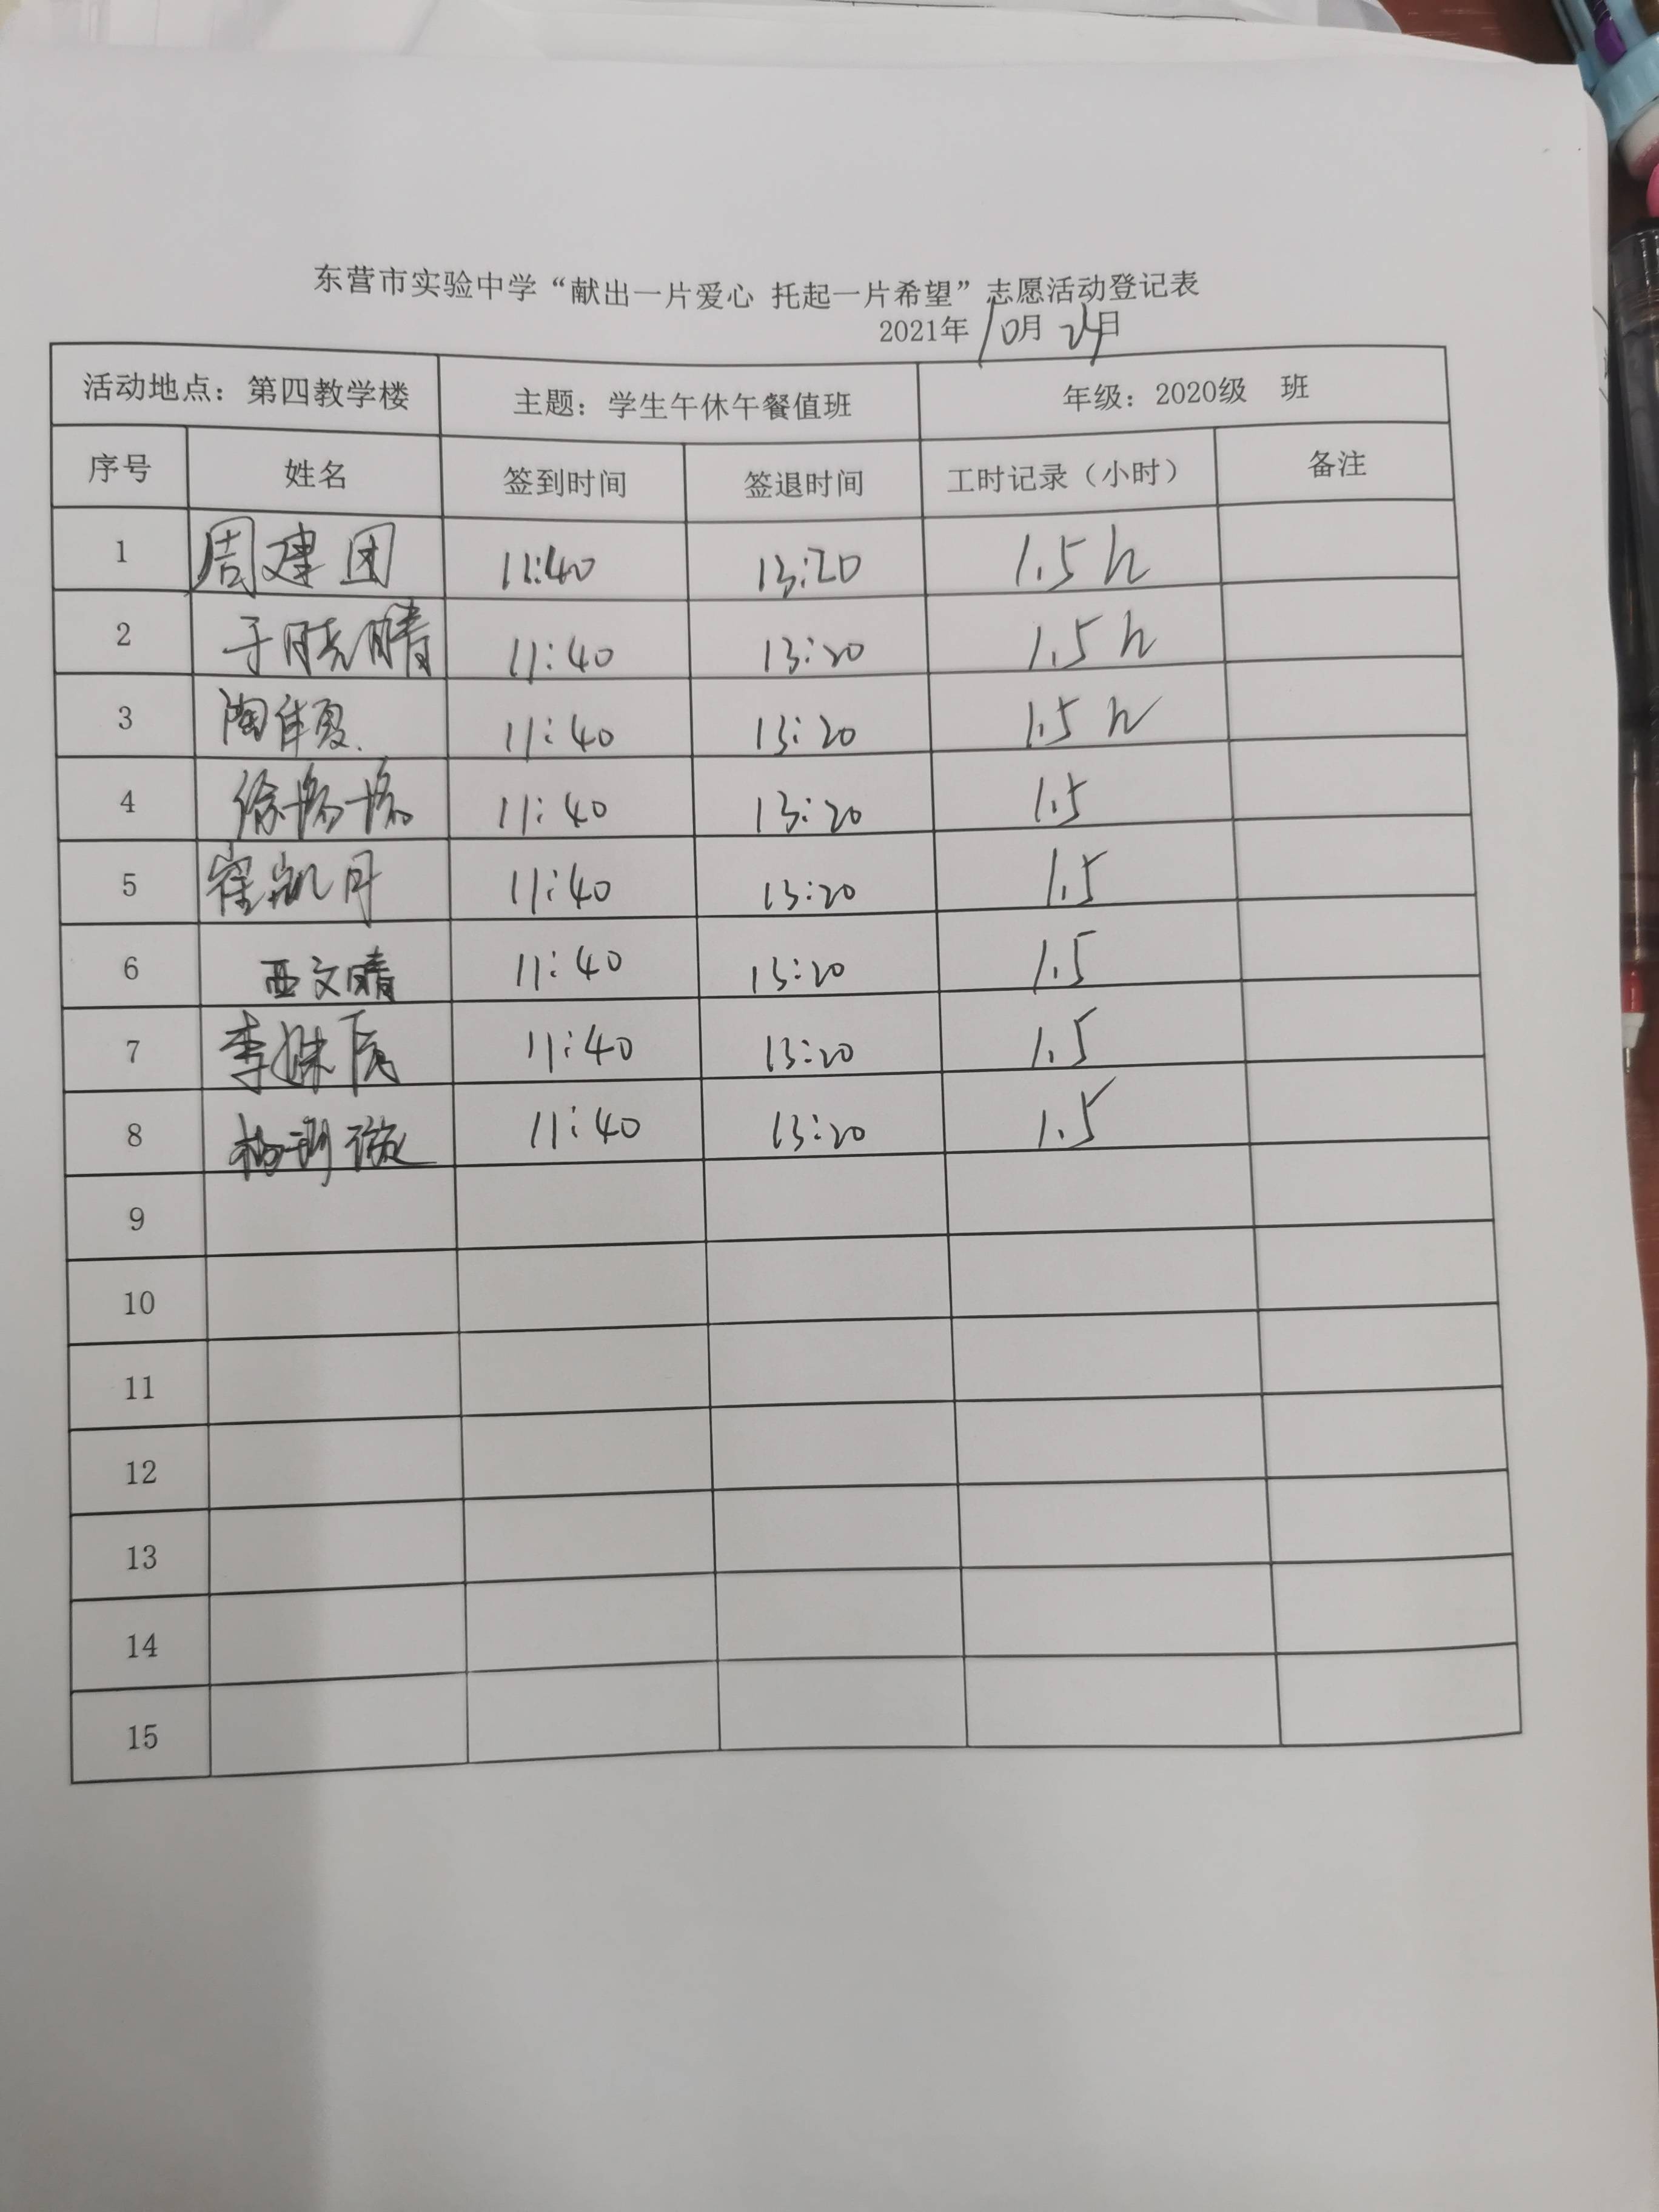 东营市实验中学“献出一片爱心 托起一片希望”志愿活动登记表
2021年10月24日
活动地点：第四教学楼 主题：学生午休午餐值班 年级：2020级 班
序号 姓名 签到时间 签退时间 工时记录（小时） 备注
1 周建团 11:40 13:20 1.5h
2 于晓晴 11:40 13:20 1.5h
3 陶 11:40 13:20 1.5h
4 徐 11:40 13:20 1.5
5 崔凯月 11:40 13:20 1.5
6 西文晴 11:40 13:20 1.5
7 李姝辰 11:40 13:20 1.5
8 杨 11:40 13:20 1.5
9
10
11
12
13
14
15